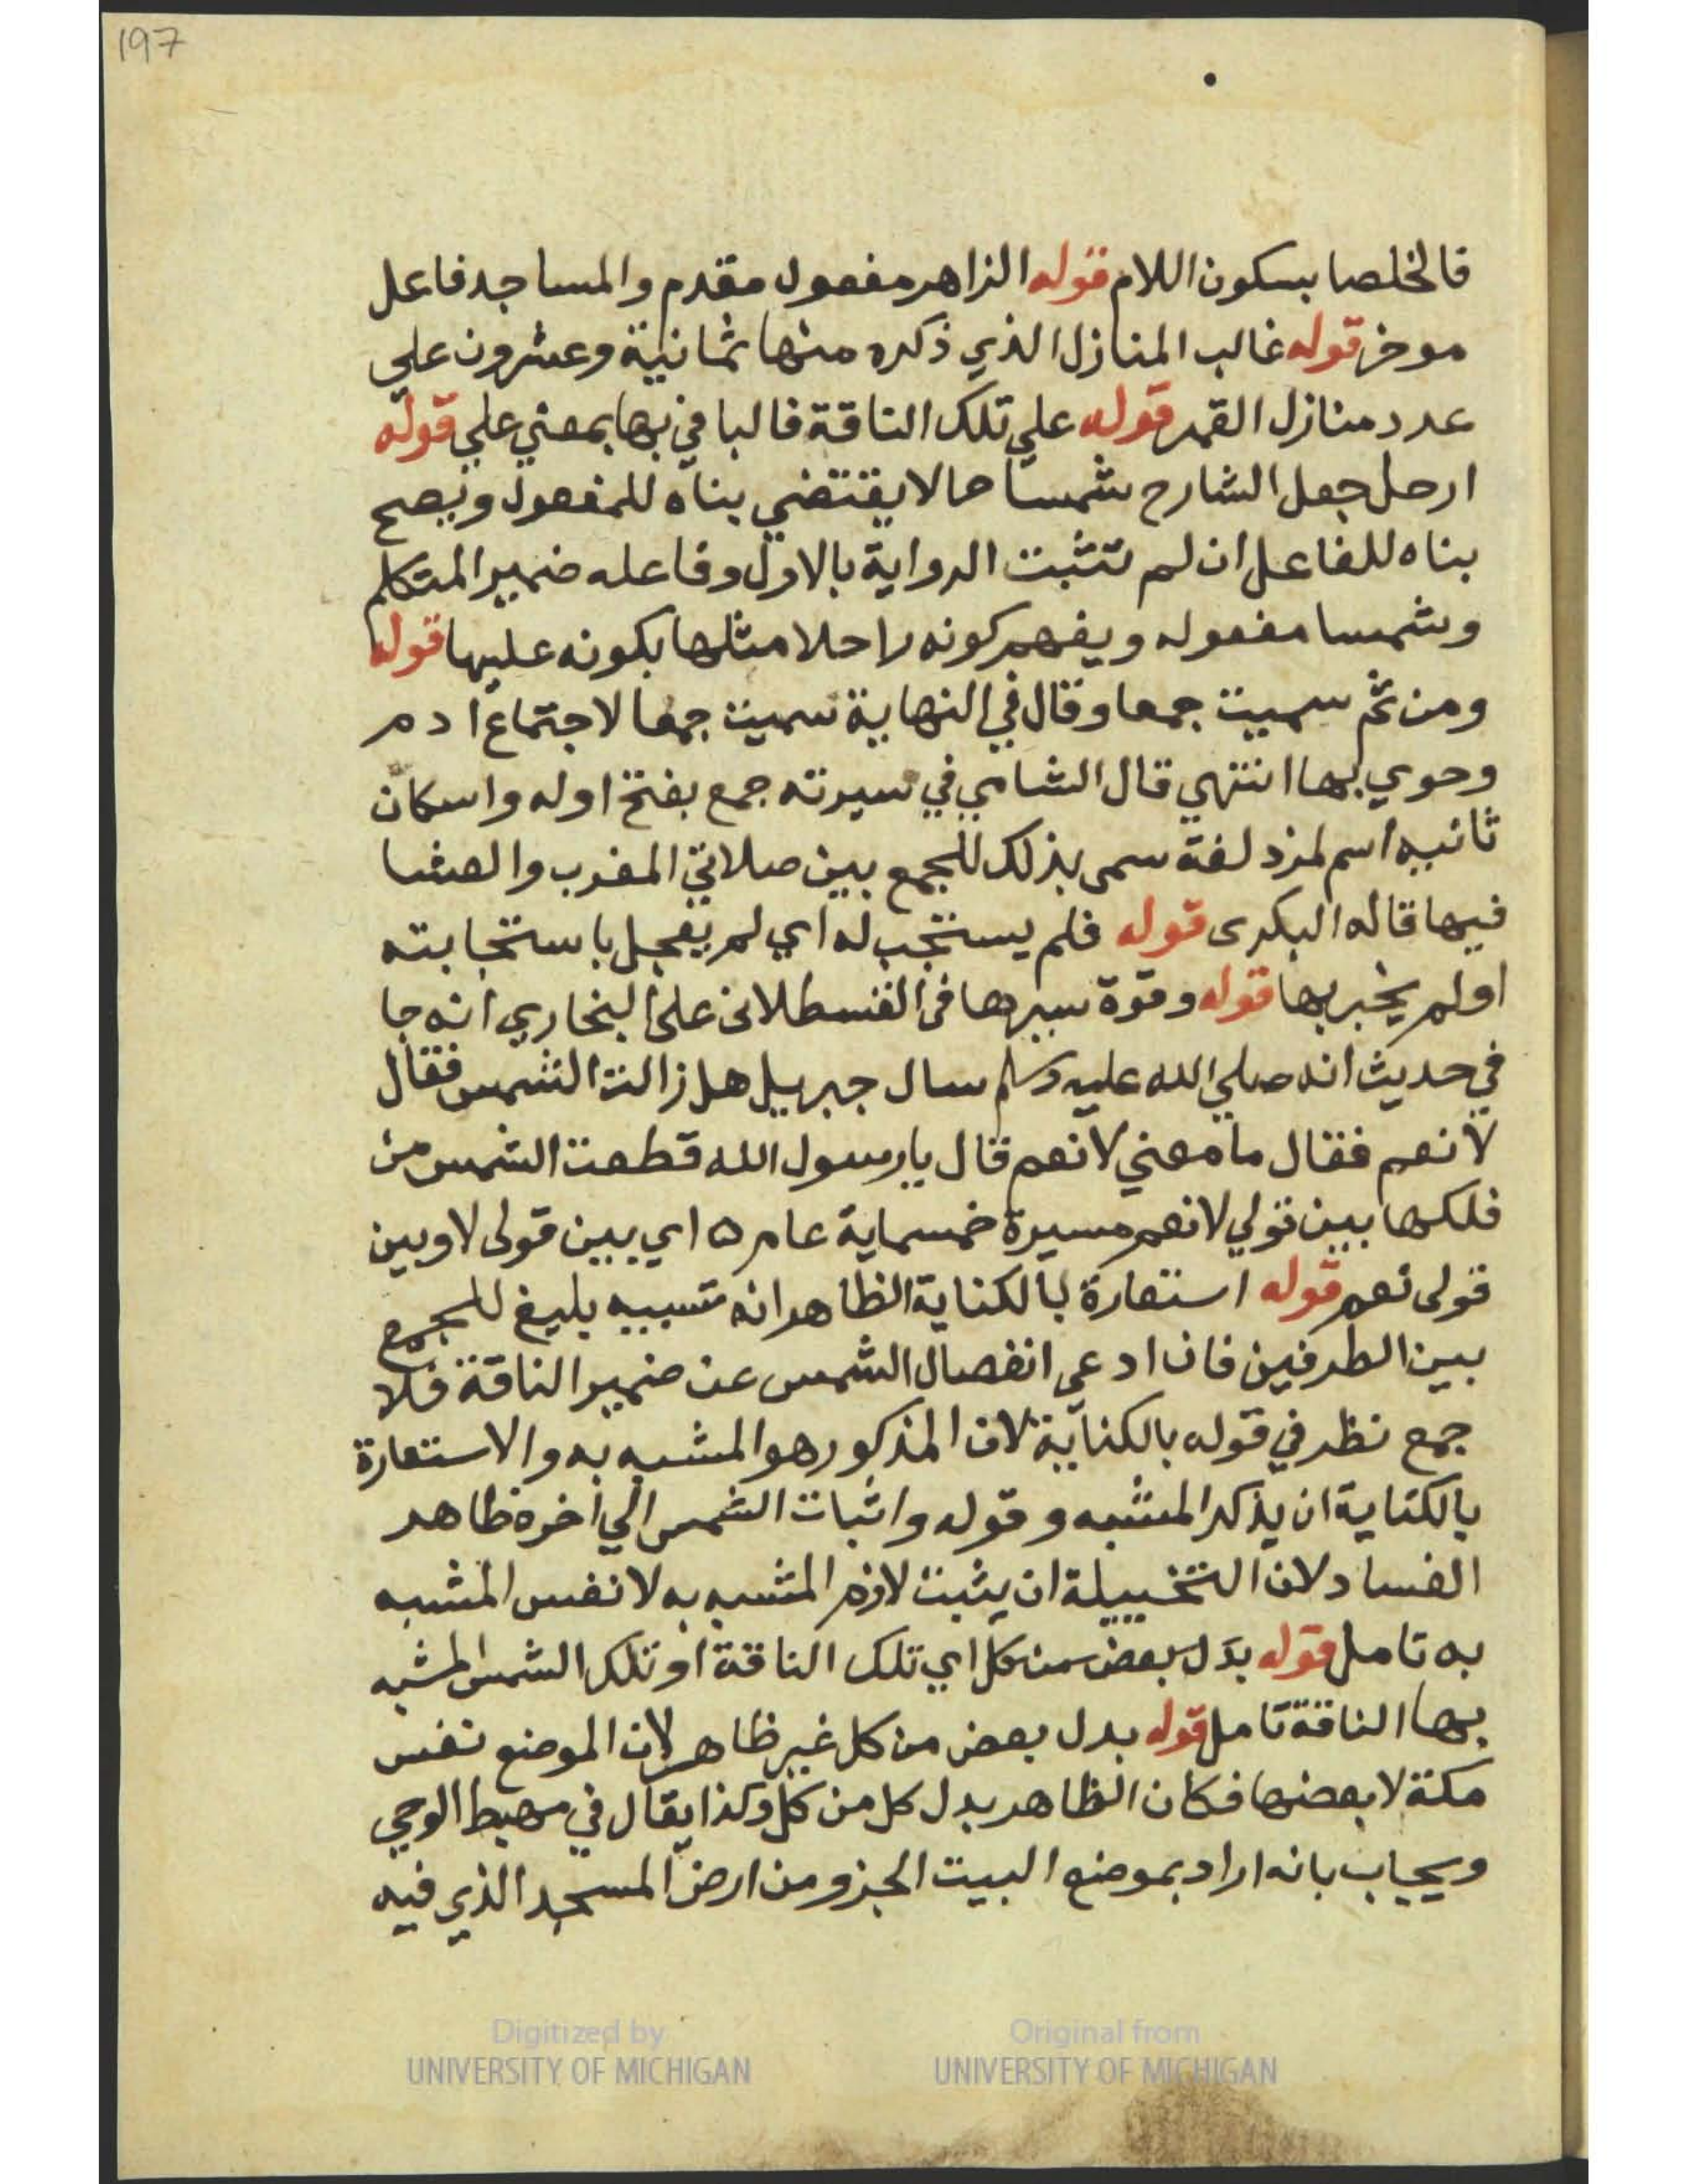 197
فالخلصا بسكون اللام قوله الزاهر مفعول مقدم والمساجد فاعل
موخر قوله غالب المنازل الذي ذكره منها ثمانية وعشرون علي
عدد منازل القمر قوله علي تلك الناقة فالبا في بها بمعني علي قوله
ارحل جعل الشارح شمسا حالا يقتضي بناه للمفعول ويصح
بناه للفاعل ان لم تثبت الرواية بالاول وفاعله ضمير المتكلم
وشمسا مفعوله ويفهم كونه راحلا مثلها بكونه عليها قوله
ومن ثم سميت جمعا وقال في النهاية سميت جمعا لاجتماع ادم
وحوي بها انتهي قال الشامي في سيرته جمع بفتح اوله واسكان
ثانيه اسم لمزدلفة سمى بذلك للجمع بين صلاتي المغرب والعشا
فيها قاله البكرى قوله فلم يستجب له اي لم يعجل باستجابته
اولم يخبر بها قوله وقوة سيرها فى القسطلانى على البخاري انه جا
في حديث انه صلي الله عليه وسلم سال جبريل هل زالت الشمس فقال
لا نعم فقال ما معني لا نعم قال يا رسول الله قطعت الشمس من
فلكها بين قولي لا نعم مسيرة خمسماية عام ه اي بين قولى لا وبين
قولى نعم قوله استعارة بالكناية الظاهر انه تشبيه بليغ للجمع
بين الطرفين فان ادعي انفصال الشمس عن ضمير الناقة فلا
جمع نظر في قوله بالكناية لان المذكور هو المشبه به والاستعارة
بالكناية ان يذكر المشبه وقوله واثبات الشمس الي اخره ظاهر
الفساد لان التخييلة ان يثبت لازم المشبه به لا نفس المشبه
به تامل قوله بدل بعض من كل اي تلك الناقة او تلك الشمس المشبه
بها الناقة تامل قوله بدل بعض من كل غير ظاهر لان الموضع نفس
مكة لا بعضها فكان الظاهر بدل كل من كل وكذا يقال في مهبط الوحي
ويجاب بانه اراد بموضع البيت الجزو من ارض المسجد الذي فيه
Digitized by
UNIVERSITY OF MICHIGAN
Original from
UNIVERSITY OF MICHIGAN